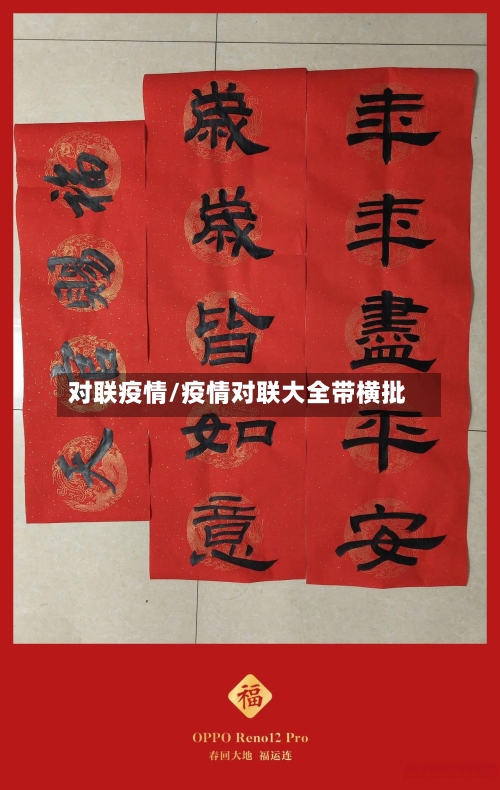 年年盡平安
歲歲皆如意
天官賜福
对联疫情/疫情对联大全带横批
福
OPPO Reno12 Pro
春回大地 福运连